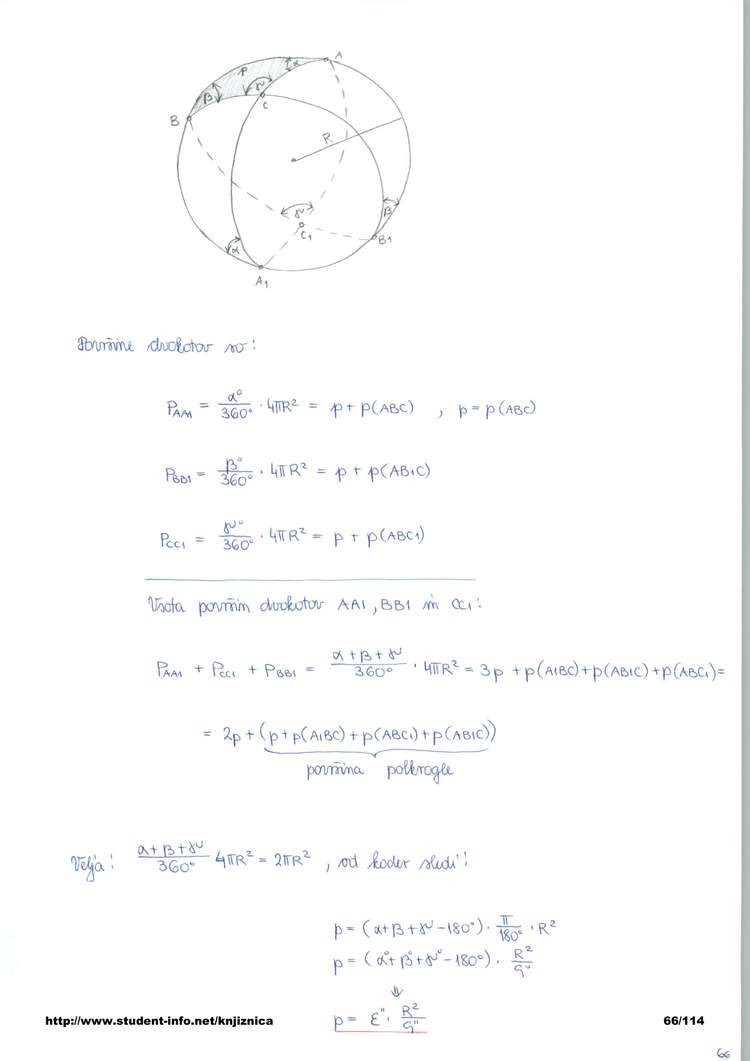 A
α
p
β
γ
C
B
R
γ
C1
β
B1
α
A1
Površine dvokotov so:
PAA1 = α°/360° · 4πR² = p + p(ABC) , p = p(ABC)
PBB1 = β°/360° · 4πR² = p + p(AB1C)
PCC1 = γ°/360° · 4πR² = p + p(ABC1)
Vsota površin dvokotov AA1, BB1 in CC1:
PAA1 + PCC1 + PBB1 = α+β+γ/360° · 4πR² = 3p + p(A1BC) + p(AB1C) + p(ABC1) =
= 2p + (p + p(A1BC) + p(ABC1) + p(AB1C))
površina polkrogle
Velja: α+β+γ/360° 4πR² = 2πR² , od koder sledi:
p = (α+β+γ-180°) · π/180° · R²
p = (α°+β°+γ°-180°) · R²/ρ°
⇓
p = ε" · R²/ρ"
http://www.student-info.net/knjiznica 66/114
66